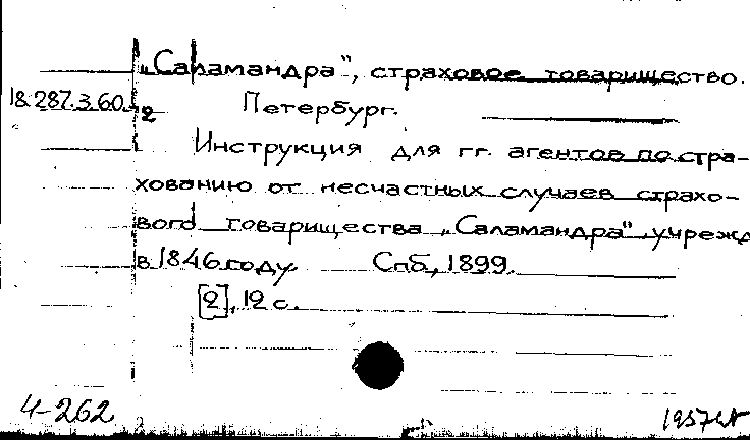 „Саламандра", страховое товарищество.
18.287.3.60.
2
Петербург.
Инструкция для гг. агентов по стра-
хованию от несчастных случаев страхо-
вого товарищества „Саламандра" учрежд
в 1846 году. Спб, 1899.
[2], 12 с.
4-262